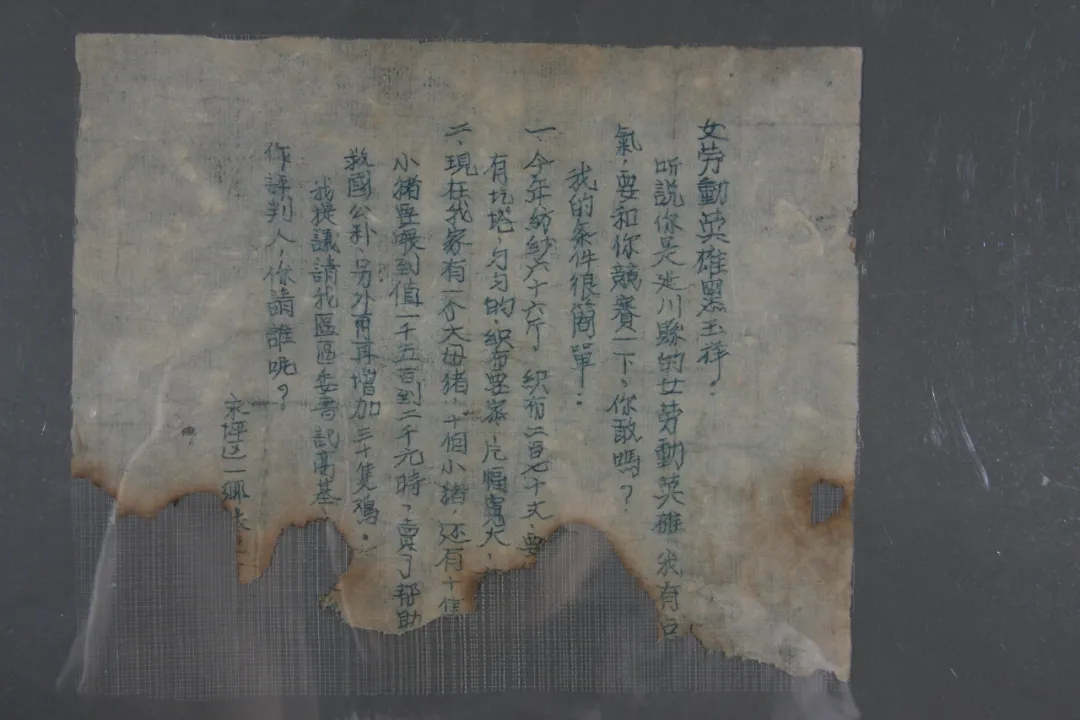 女劳動英雄黑玉祥.
听説你是延川縣的女劳動英雄 我有
氣.要和你競賽一下、你敢嗎？
我的条件很簡單：
一.今年纺紗六十六斤.織布二百七十丈.要
有圪塔.匀匀的.織布要 片幅寬大.
二.現在我家有一个大母猪.十個小豬.还有十隻
小猪要喂到值一千五百到二千元時、賣了帮助
救國公糸、另外再增加三十隻鸡.
我提議請我區區委書記高基
作評判人，你請誰呢？
永坪区一鄉